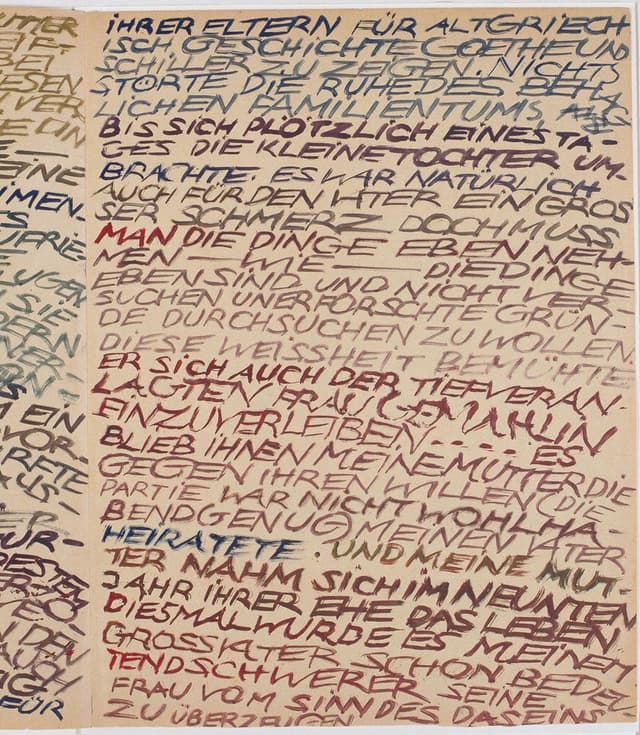 UTTER
BEI
ESEN
EINE
IMEN-
UFRIE-
LUGEN
SIE
M EIN
VOR-
RFTE
AUS-
N DEN
AUCH
FÜR
IHRER ELTERN FÜR ALTGRIECH
ISCH GESCHICHTE GOETHE UND
SCHILLER ZU ZEIGEN. NICHTS
STÖRTE DIE RUHE DES BEH-
LICHEN FAMILIENTUMS,
BIS SICH PLÖTZLICH EINES TA-
GES DIE KLEINE TOCHTER UM-
BRACHTE. ES WAR NATÜRLICH
AUCH FÜR DEN VATER EIN GROS
SER SCHMERZ DOCH MUSS
MAN DIE DINGE EBEN NEH-
MEN — WIE — DIE DINGE
EBEN SIND. UND NICHT VER-
SUCHEN UNERFORSCHTE GRÜN-
DE DURCHSUCHEN ZU WOLLEN.
DIESE WEISSHEIT BEMÜHTE
ER SICH AUCH DER TIEFVERAN-
LAGTEN FRAU GEMAHLIN
EINZUVERLEIBEN . . . . . ES
BLIEB IHNEN MEINE MUTTER DIE
GEGEN IHREN WILLEN (DIE
PARTIE WAR NICHT WOHLHA-
BEND GENUG) MEINEN VATER
HEIRATETE . UND MEINE MUT-
TER NAHM SICH IM NEUNTEN
JAHR IHRER EHE DAS LEBEN.
DIESMAL WURDE ES MEINEM
GROSSVATER SCHON BEDEU-
TEND SCHWERER SEINE
FRAU VOM SINN DES DASEINS
ZU ÜBERZEUGEN